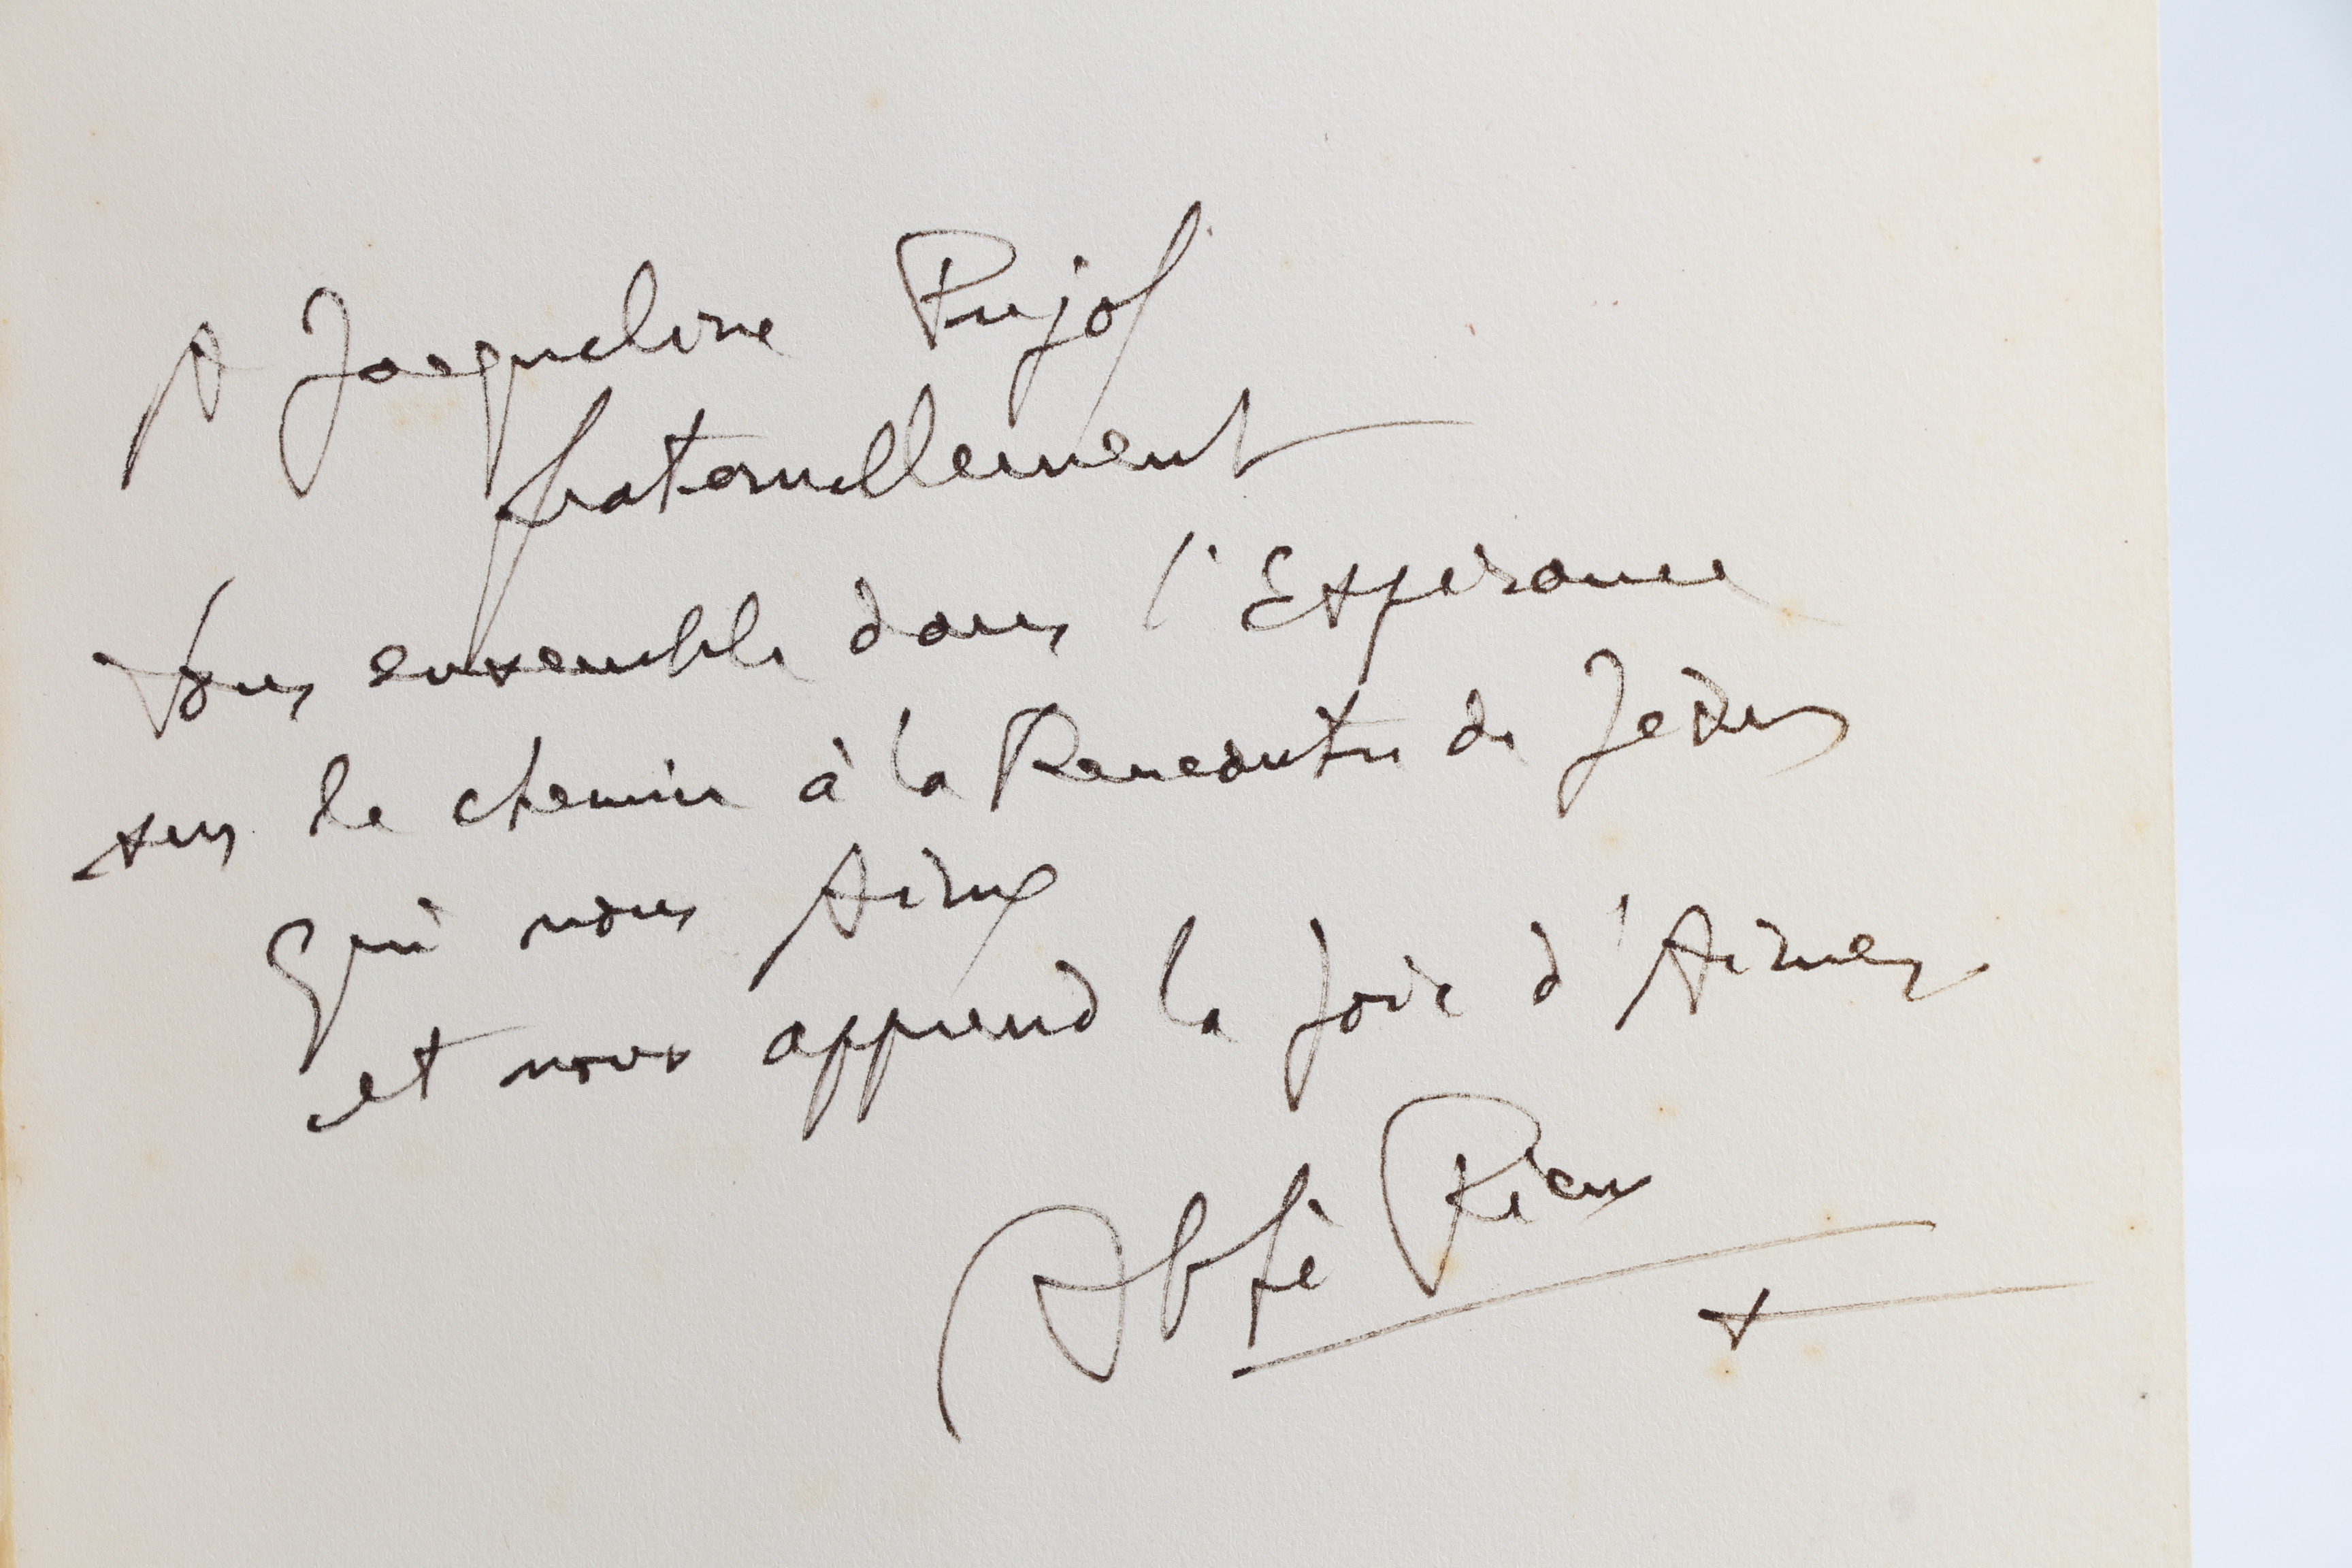 A Jacqueline Pujol
fraternellement
Tous ensemble dans l'Espérance
sur le chemin à la Rencontre de Jésus
Qui nous Aime
et nous apprend la Joie d'Aimer
Abbé